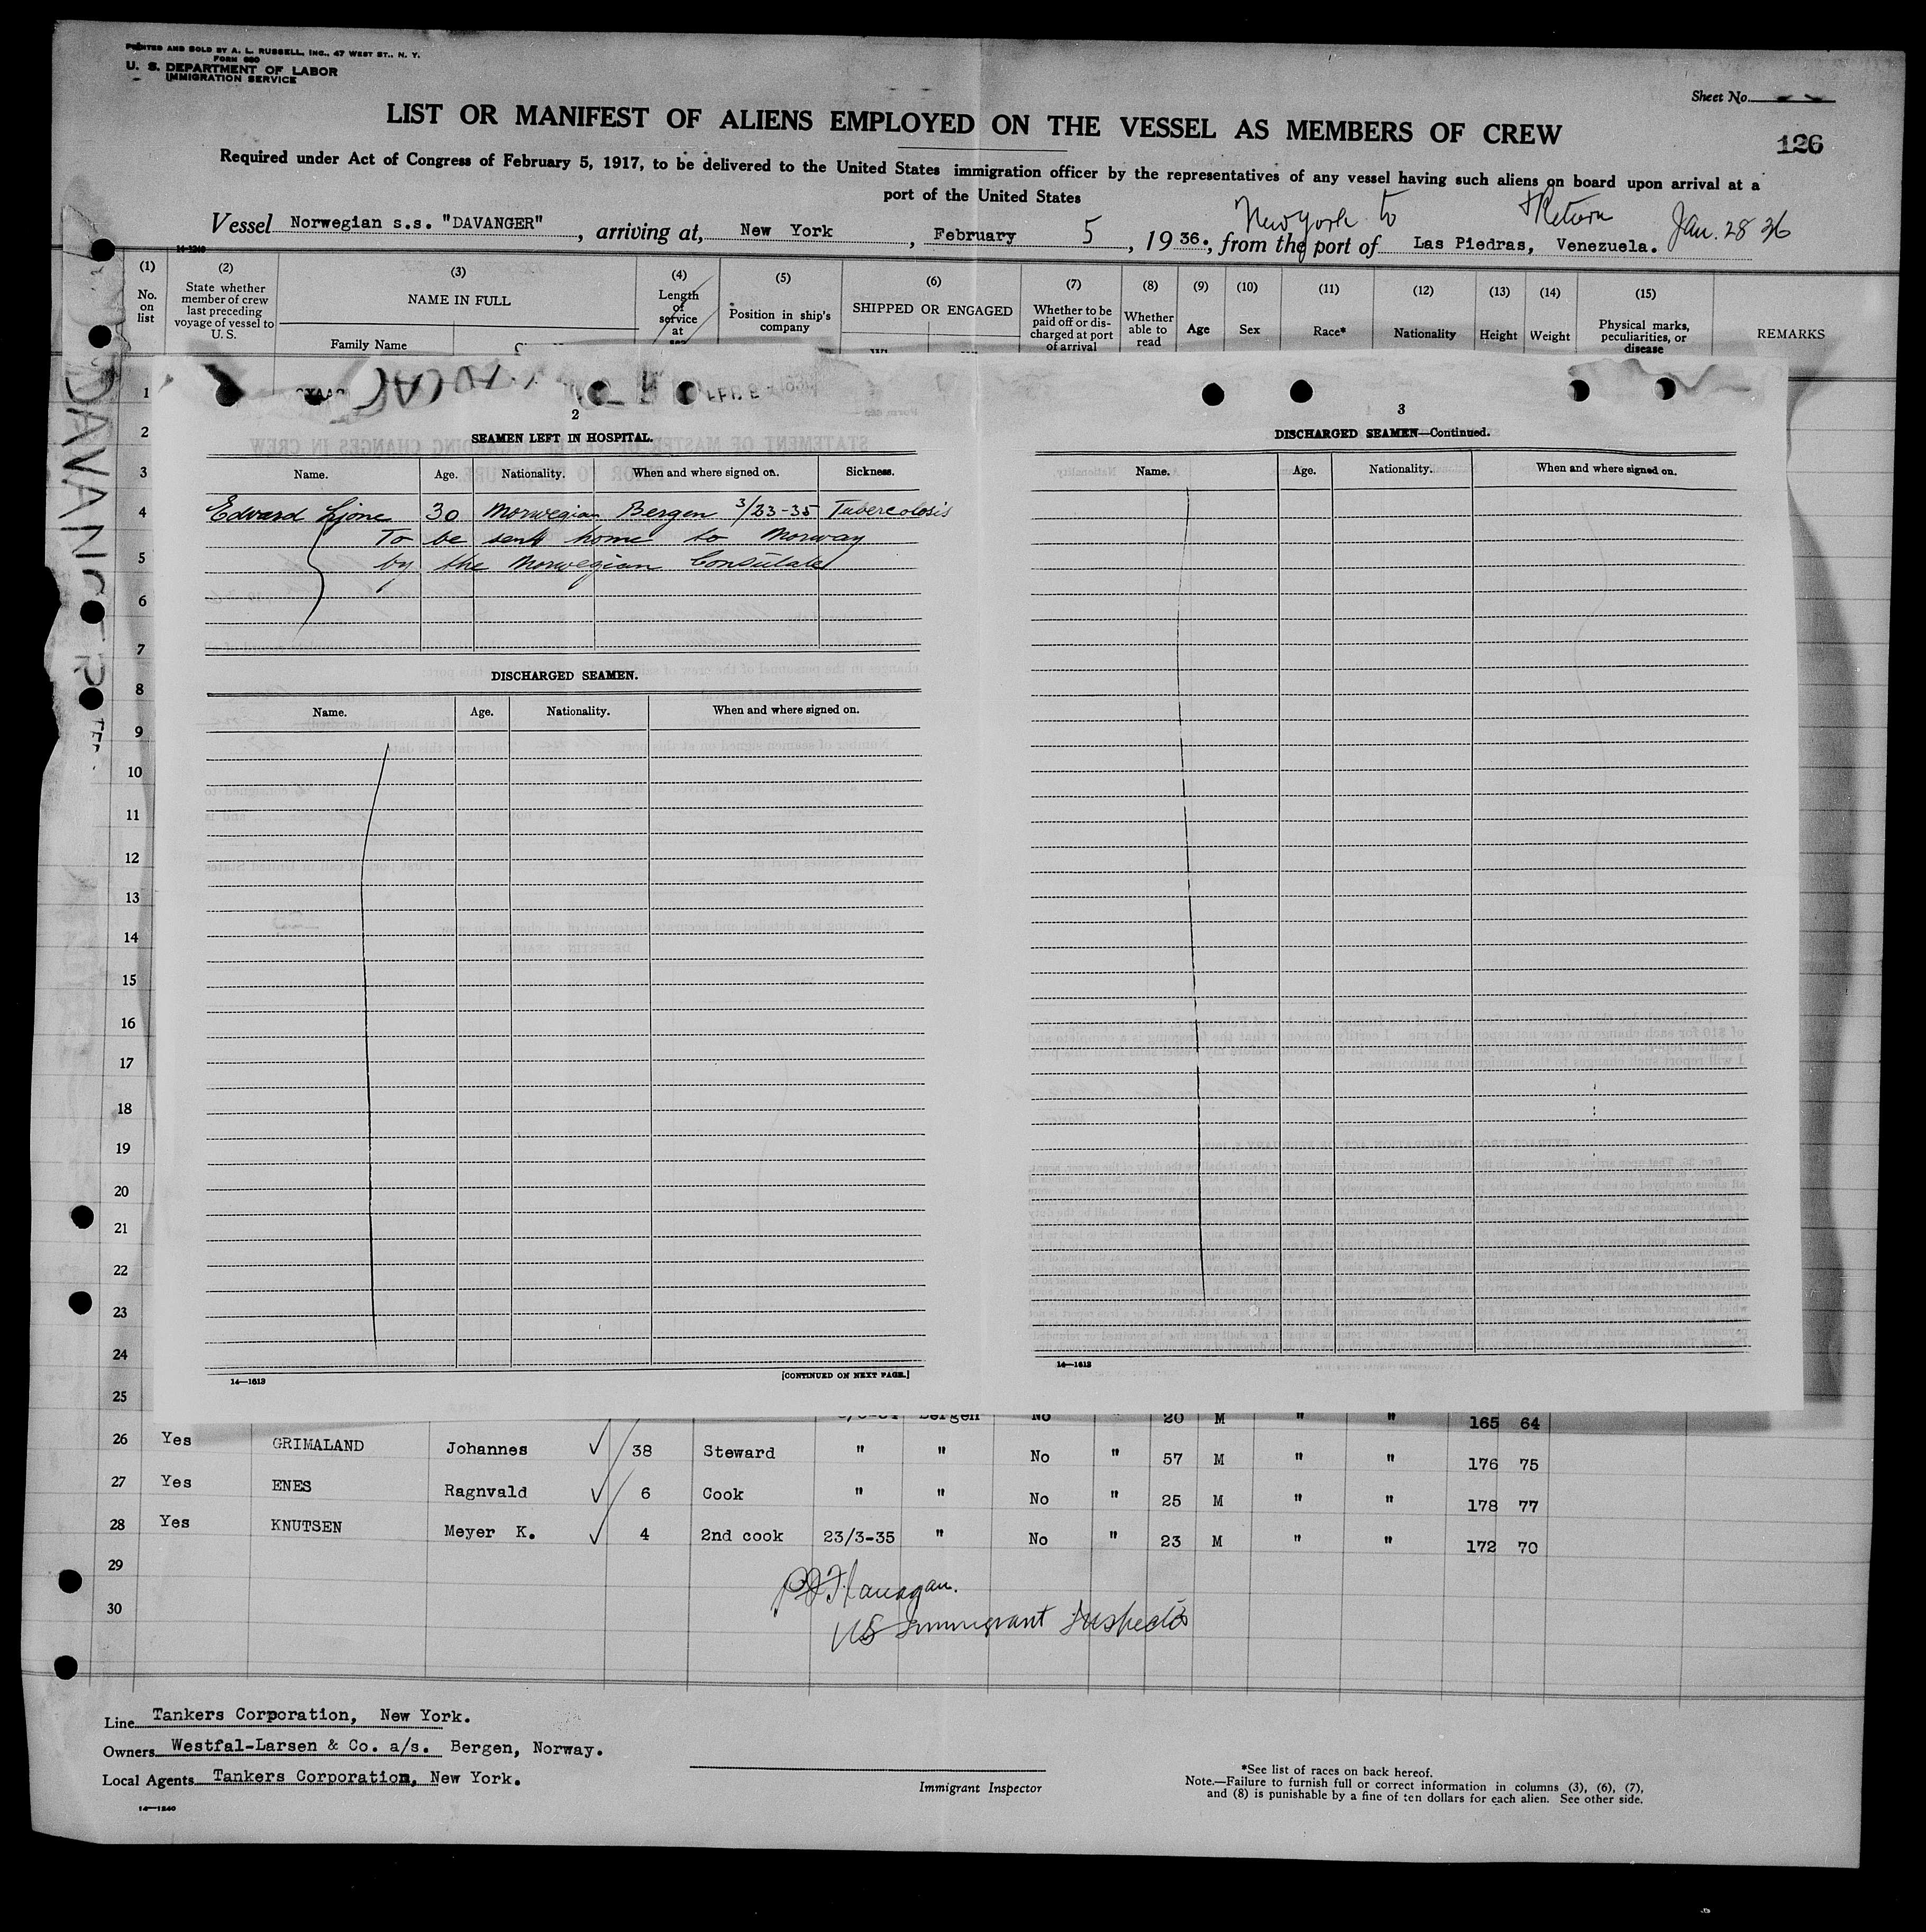 PRINTED AND SOLD BY A. L. RUSSELL, INC., 47 WEST ST., N. Y.
FORM 680
U. S. DEPARTMENT OF LABOR
IMMIGRATION SERVICE
Sheet No.
LIST OR MANIFEST OF ALIENS EMPLOYED ON THE VESSEL AS MEMBERS OF CREW
126
Required under Act of Congress of February 5, 1917, to be delivered to the United States immigration officer by the representatives of any vessel having such aliens on board upon arrival at a
port of the United States
New York to & Return Jan. 28 36
Vessel Norwegian s.s. "DAVANGER", arriving at, New York, February 5, 19 36., from the port of Las Piedras, Venezuela.
14-1240
(1) (2) (3) (4) (5) (6) (7) (8) (9) (10) (11) (12) (13) (14) (15)
No. on list
State whether member of crew last preceding voyage of vessel to U. S.
NAME IN FULL
Family Name
Length of service at sea
Position in ship's company
SHIPPED OR ENGAGED
Whether to be paid off or discharged at port of arrival
Whether able to read
Age
Sex
Race*
Nationality
Height
Weight
Physical marks, peculiarities, or disease
REMARKS
DAVANGER
1
2
3
4
5
6
7
8
9
10
11
12
13
14
15
16
17
18
19
20
21
22
23
24
25
2
SEAMEN LEFT IN HOSPITAL.
Name. Age. Nationality. When and where signed on. Sickness.
Edward 30 Norwegian Bergen 3/23-35 Tubercolosis
To be sent home to Norway
by the Norwegian Consulate
DISCHARGED SEAMEN.
Name. Age. Nationality. When and where signed on.
14—1613
[CONTINUED ON NEXT PAGE.]
3
DISCHARGED SEAMEN—Continued.
Name. Age. Nationality. When and where signed on.
14—1613
Bergen No 20 M " " 165 64
26 Yes GRIMALAND Johannes 38 Steward " " No " 57 M " " 176 75
27 Yes ENES Ragnvald 6 Cook " " No " 25 M " " 178 77
28 Yes KNUTSEN Meyer K. 4 2nd cook 23/3-35 " No " 23 M " " 172 70
29
30
PJ Flanagan.
US Immigrant Inspector
Line Tankers Corporation, New York.
Owners Westfal-Larsen & Co. a/s. Bergen, Norway.
Local Agents Tankers Corporation, New York.
14—1240
Immigrant Inspector
*See list of races on back hereof.
Note.—Failure to furnish full or correct information in columns (3), (6), (7),
and (8) is punishable by a fine of ten dollars for each alien. See other side.